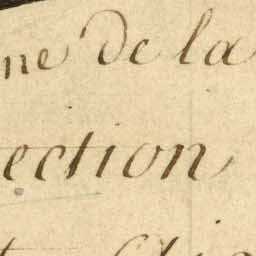 ne de la
ection